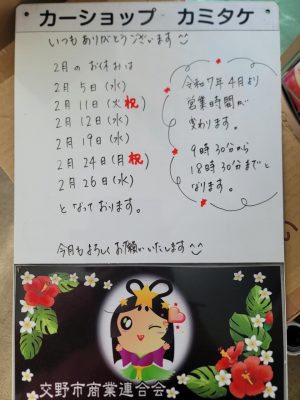 カーショップ カミタケ
いつもありがとうございます
2月のお休みは
2月5日(水)
2月11日(火祝)
2月12日(水)
2月19日(水)
2月24日(月祝)
2月26日(水)
となっております。
令和7年4月より
営業時間が
変わります。
9時30分から
18時30分までと
なります。
今月もよろしくお願いいたします
交野市商業連合会